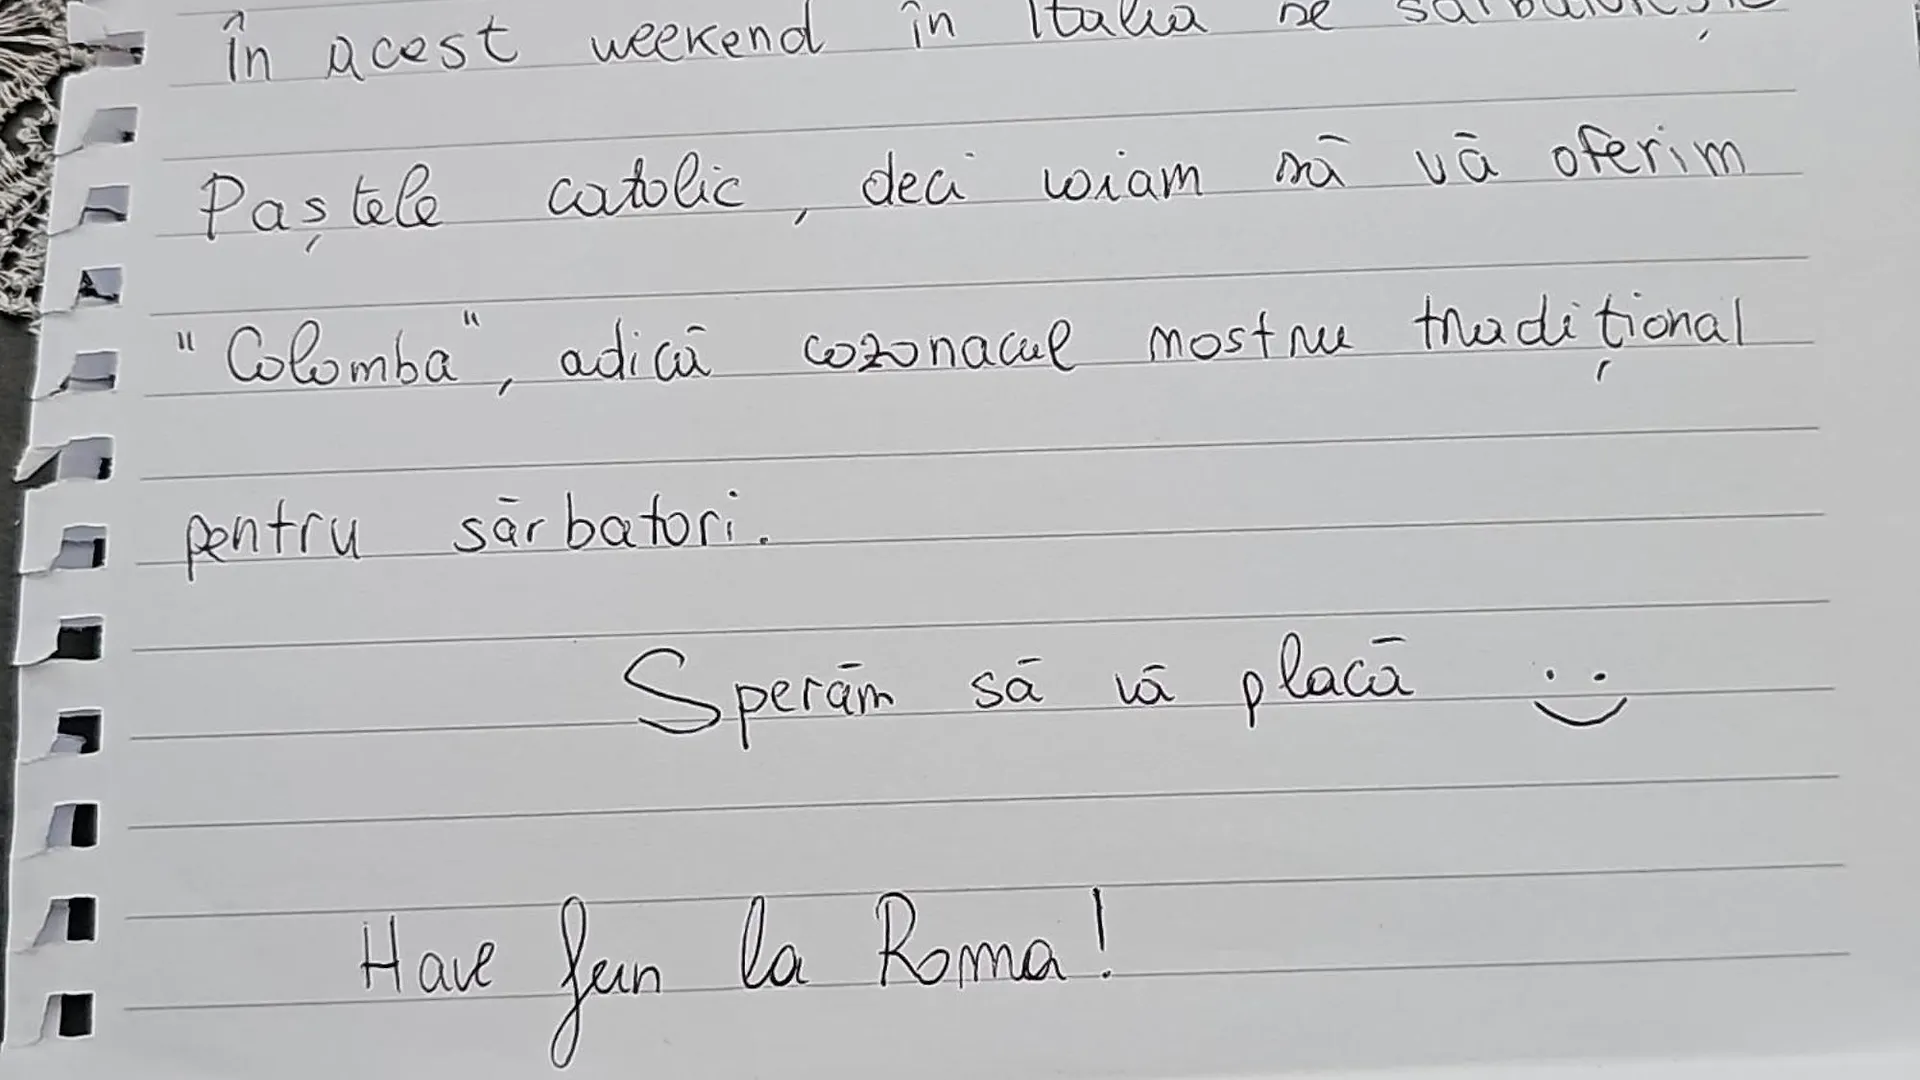 În acest weekend în Italia se sărbătorește
Paștele catolic, deci voiam să vă oferim
"Colomba", adică cozonacul nostru tradițional
pentru sărbatori.
Sperăm să vă placă :)
Have fun la Roma!